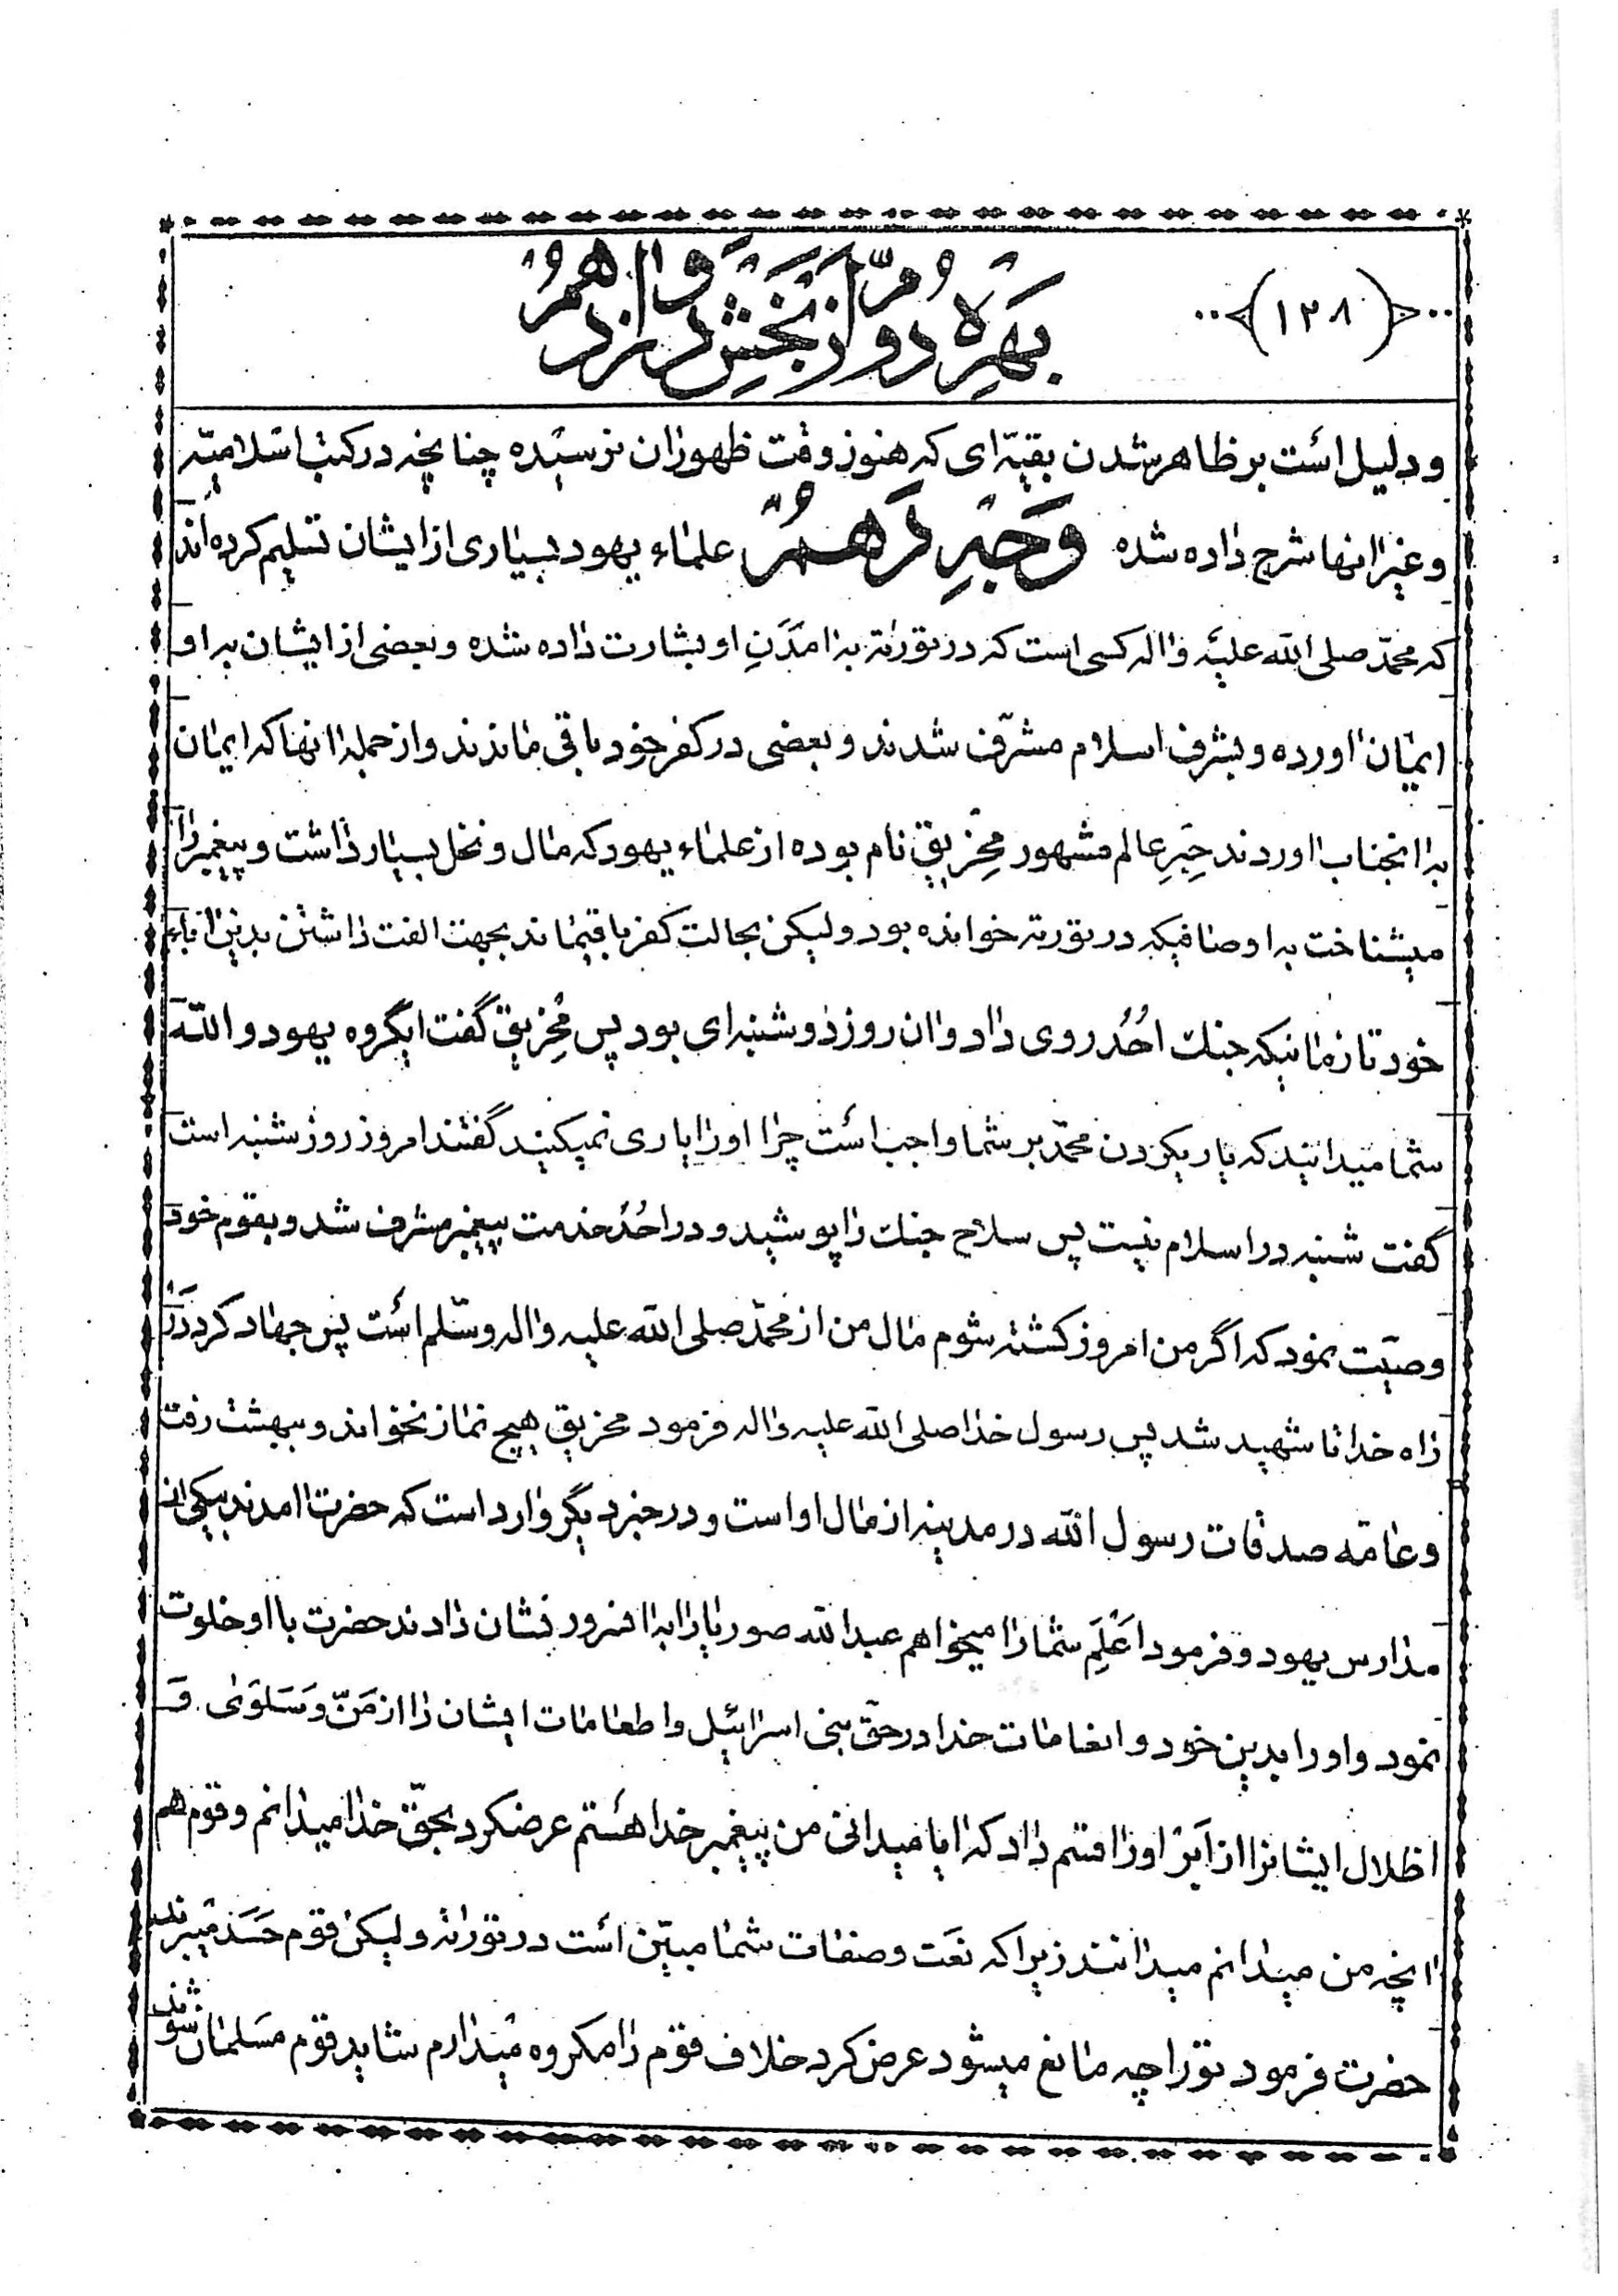 (۱۲۸)
بهره دوّم از بخش دوازدهم
و دلیل است بر ظاهر شدن بقیّه‌ای که هنوز وقت ظهورزان نرسیده چنانچه در کتب اسلامیّه
و غیر انها شرح داده شده وجه دهم علماء یهود بسیاری از ایشان تسلیم کرده‌اند
که محمّد صلی الله علیه واله کسی است که در توریة به امدَنِ او بشارت داده شده و بعضی از ایشان به او
ایمان اورده و بشرف اسلام مشرّف شدند و بعضی در کفر خود باقی ماندند و از جملهٔ انها که ایمان
به انجناب اوردند حِبَرِ عالم مشهور مُخَیریق نام بوده از علماء یهود که مال و نخل بسیار داشت و پیغمبر را
میشناخت به اوصافیکه در توریة خوانده بود ولیکن بحالت کفر باقیماند بجهت الفت داشتن بدین اباء
خود تا زمانیکه جنك اُحُد روی داد و ان روز دوشنبه‌ای بود پس مُخِزیق گفت ایگروه یهود والله
شما میدانید که یاریکردن محمّد بر شما واجب است چرا او را یاری نمیکنید گفتند امروز روز شنبه است
گفت شنبه در اسلام نیست پس سلاح جنك را پوشید و در اُحُد خدمت پیغمبر مشرف شد و بقوم خود
وصیّت نمود که اگر من امروز کشته شوم مال من از محمّد صلی الله علیه واله وسلّم است پس جهاد کرد دَر
راه خدا تا شهید شد پس رسول خدا صلی الله علیه واله فرمود مخزیق هیچ نماز نخواند و ببهشت رفت
و عامّه صدقات رسول الله در مدینه از مال او است و در خبر دیگر وارد است که حضرت امدند بیکی از
مدارس یهود و فرمود اَعْلَمِ شما را میخواهم عبدالله صوریا را به انسرور نشان دادند حضرت با او خلوت
نمود و او را بدین خود و انعامات خدا در حقّ بنی اسرائیل و اطعامات ایشان را از مَنّ وَسَلوَی وَ
اظلال ایشانرا از اَبر او را قسم داد که ایا میدانی من پیغمبر خدا هستم عرضکرد بحقّ خدا میدانم و قوم هم
انچه من میدانم میدانند زیرا که نعَت و صفات شما مبیّن است در توراة ولیکن قوم حَسَد میبرند
حضرت فرمود تو را چه مانع میشود عرض کرد خلاف قوم را مکروه میدارم شاید قوم مسلمان شوند